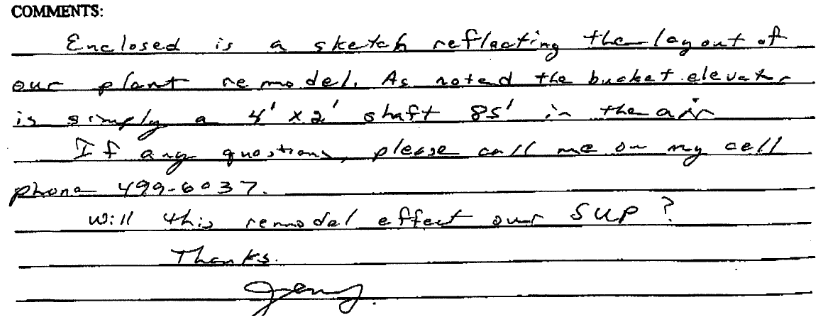 COMMENTS:
Enclosed is a sketch reflecting the layout of
our plant remodel. As noted the bucket elevator
is simply a 4' x 2' shaft 85' in the air
If any questions, please call me on my cell
phone 499-6037.
Will this remodel effect our SUP?
Thanks.
Jerry.